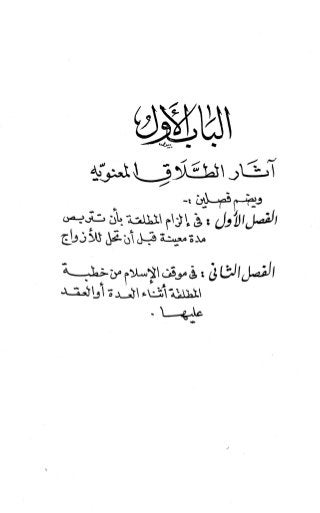 الباب الأول
آثار الطلاق المعنويه
ويضم فصلين :-
الفصل الأول : في إلزام المطلقة بأن تتربص
مدة معينة قبل أن تحل للأزواج
الفصل الثانى : في موقف الإسلام من خطبة
المطلقة أثناء العدة أو العقد
عليها .